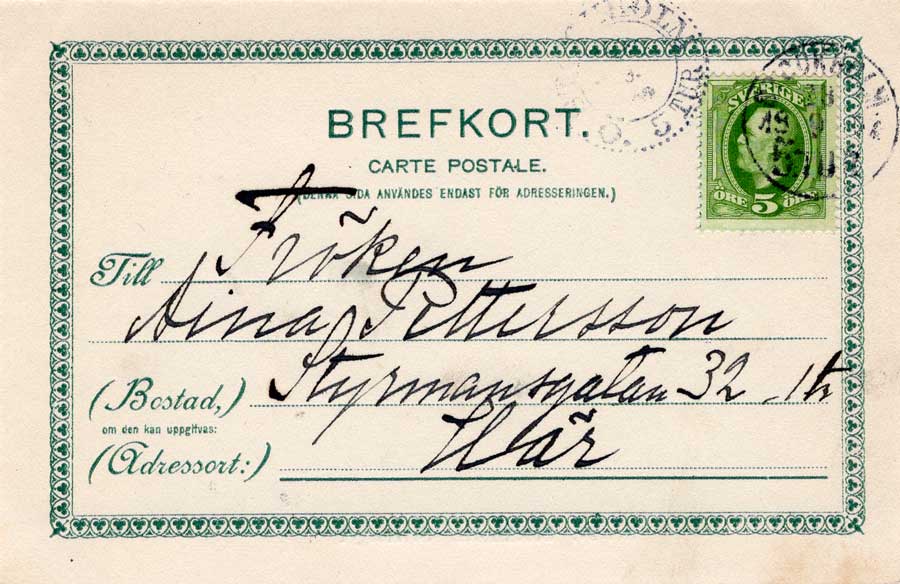 BREFKORT.
CARTE POSTALE.
(DENNA SIDA ANVÄNDES ENDAST FÖR ADRESSERINGEN.)
SVERIGE
ÖRE 5 ÖRE
Till Fröken
Aina Pettersson
(Bostad,) Styrmansgatan 32 1tr
om den kan uppgifvas:
(Adressort:) Här